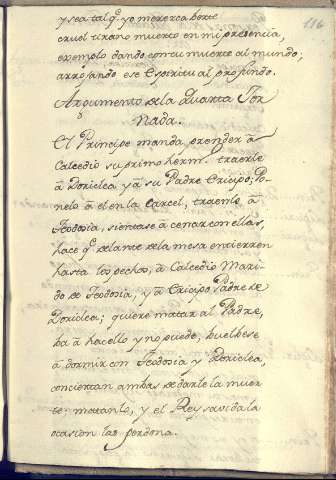 116
y sea tal q.e yo merezca verte
cruel tirano muerto en mi presencia,
exemplo dando con tu muerte al mundo,
arrojando ese Espiritu al profundo.
Argumento de la Quarta Jor
nada.
El Principe manda prender â
Calcedio su primo herm. traerle
â Doriclea y â su Padre Crisipo, Po-
nelo â el en la Carcel, traenle â
Teodosia, sientase â cenar con ellas,
hace q.e delante de la mesa entierren
hasta los pechos, â Calcedio Mari-
do de Teodosia, y â Crisipo Padre de
Doriclea; quiere matar al Padre,
bâ â hacello y no puede, buelbese
â dormir con Teodosia y Doriclea,
conciertan ambas de darle la muer
te: matanlo, y el Rey savida la
ocasion las perdona.